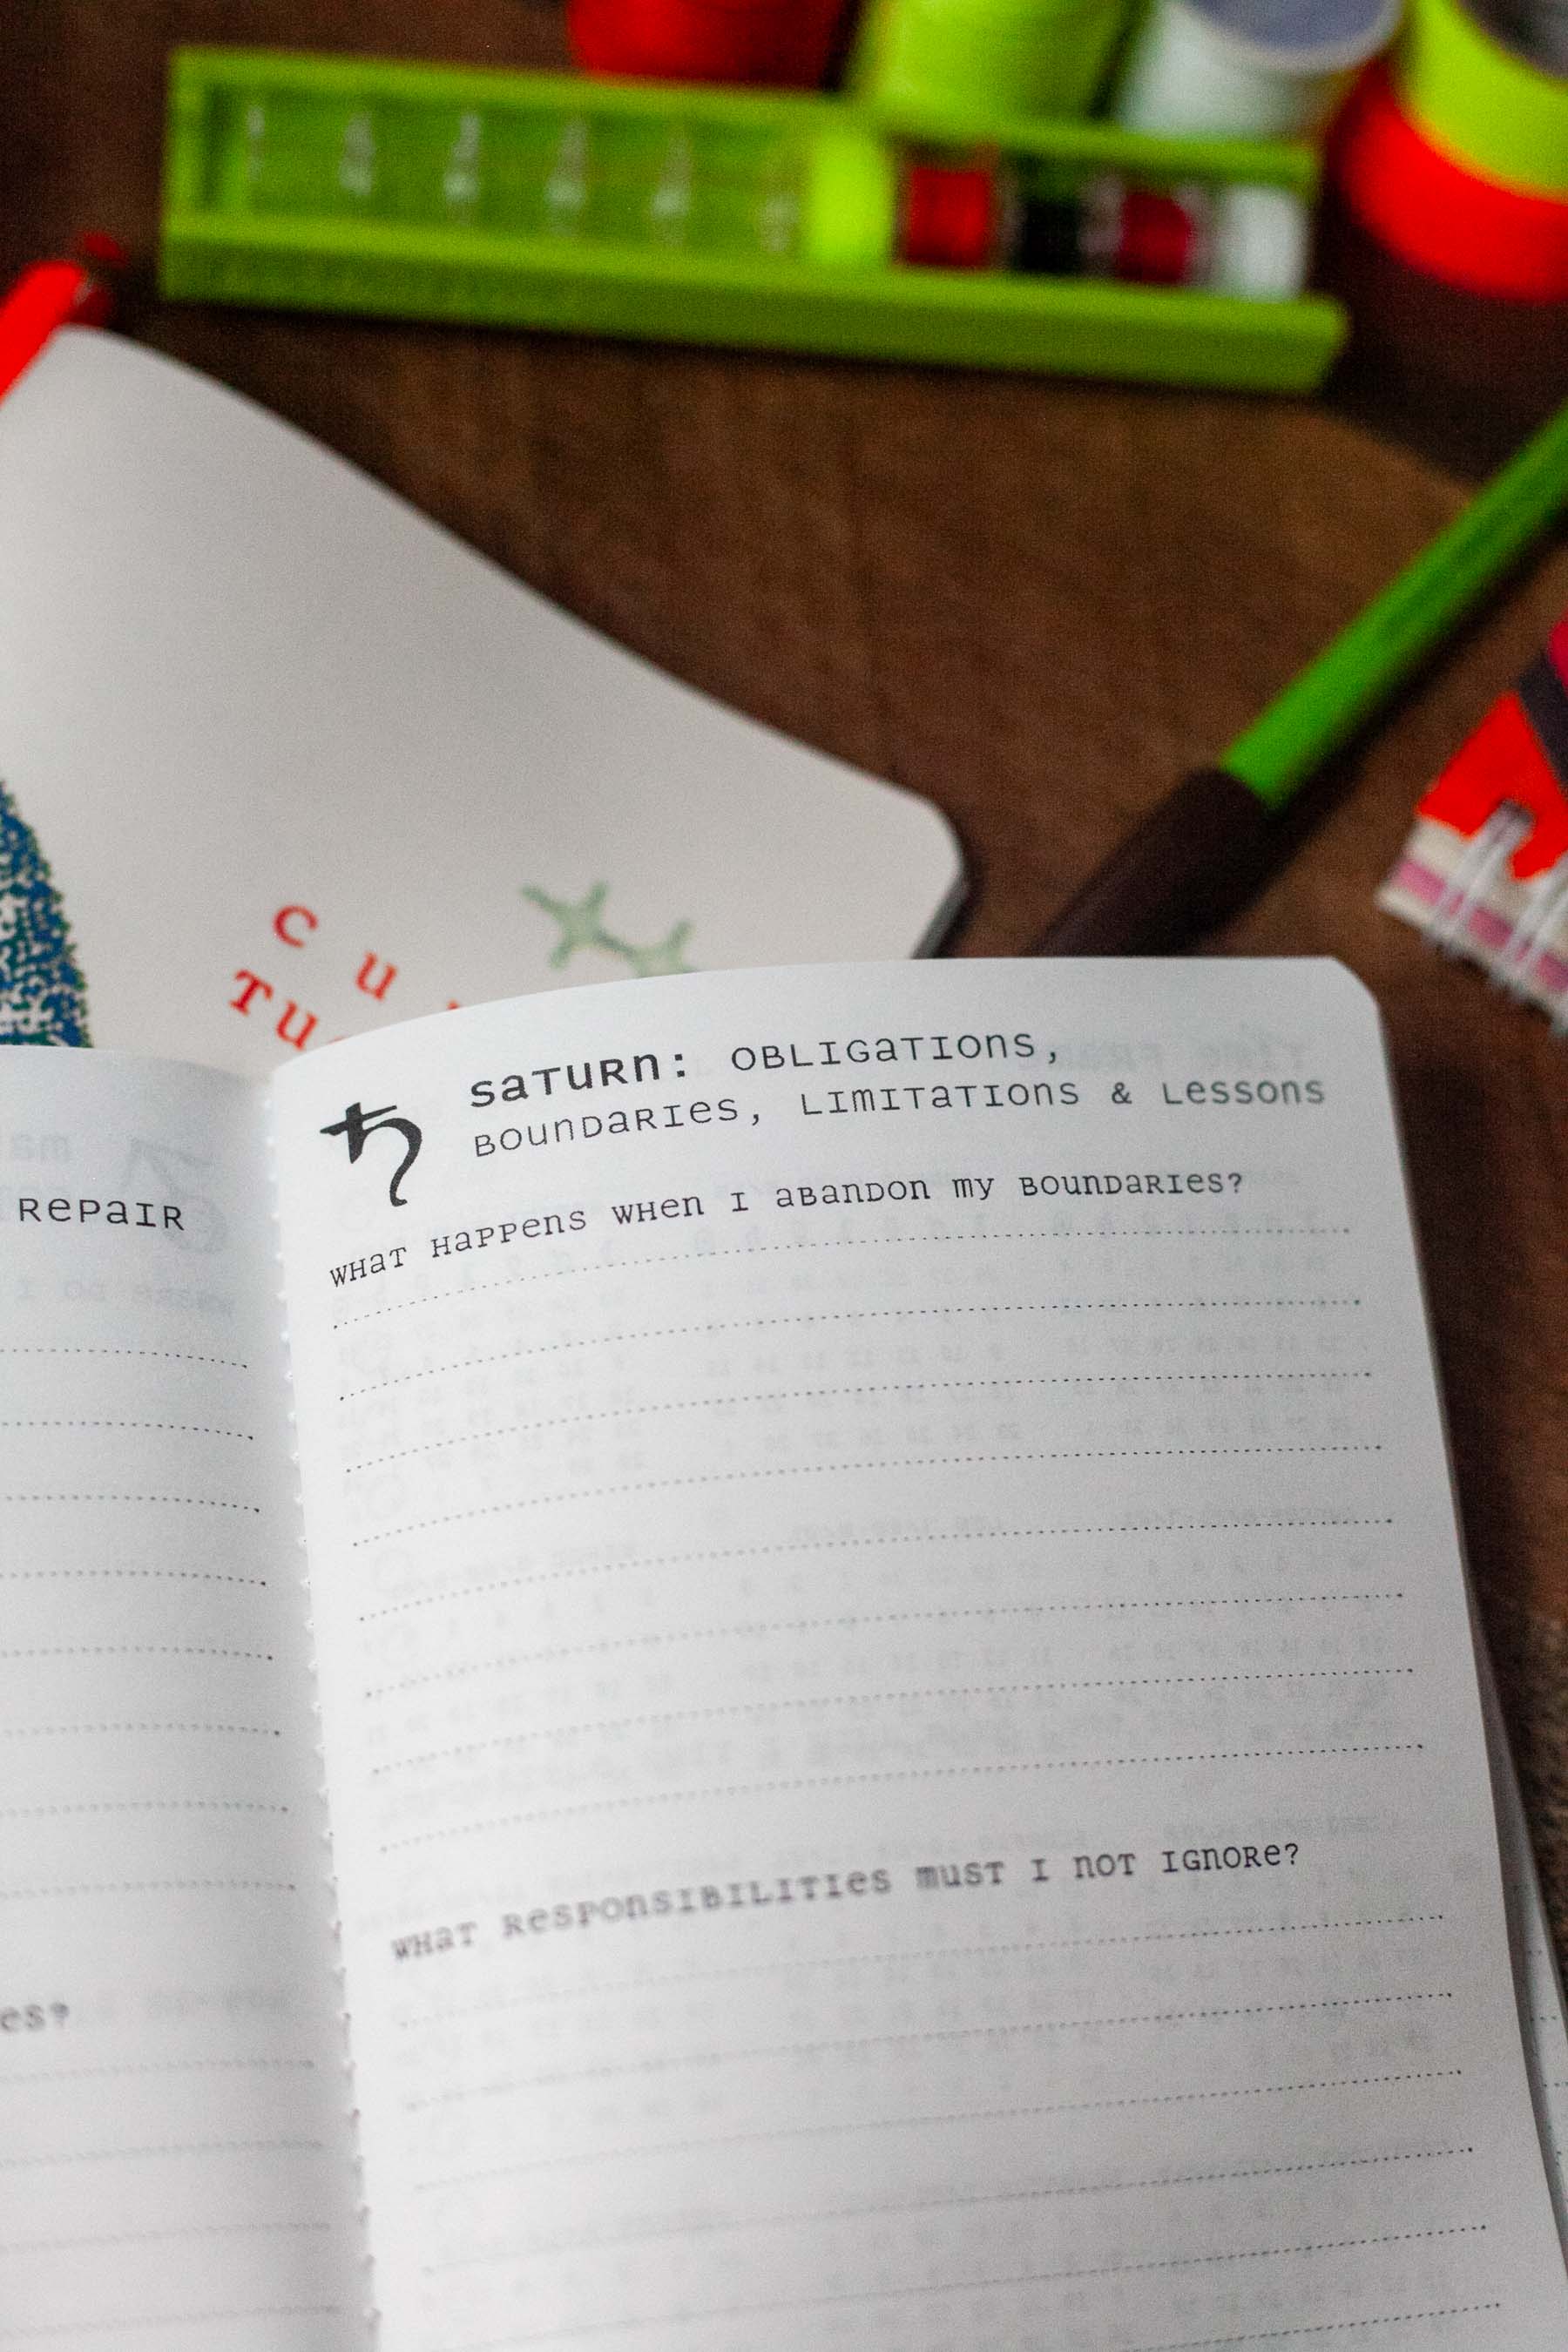 c u
TU
REPAIR
es?
♄ SaTURn: OBLIGaTIOns,
BOUnDaRIes, LImITaTIOns & Lessons
WHaT HaPPens WHen I aBanDOn my BOUnDaRIes?
WHaT ResPOnsIBILITIes mUsT I nOT IGnORe?